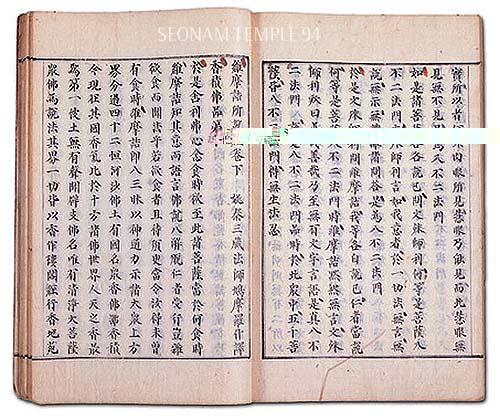 SEONAM TEMPLE 94
實所以者肉眼所見慧眼乃能見而此慧眼無
見無不見爲入不二法門
如是諸菩薩各各說已問文殊師利何等是菩薩入
不二法門師利言如我意者於一切法無言無
說無示無識諸問答是爲入不二法門
於是文殊師利問維摩詰我等各自說已仁者當說
何等是菩薩入不二法門時維摩詰默然無言文殊
師利歎曰善哉善哉乃至無有文字語言是真入不
二法門入不二法門品時於此衆中五千菩
薩皆入不二法門得無生法忍
維摩詰所說經卷下 姚秦三藏法師鳩摩羅什譯
香積佛品第
於是舍利弗心念食時欲至此諸菩薩當於何食時
維摩詰知其意而語言佛說八解脫仁者受行豈雜
欲食而聞法乎若欲食者且待須臾當令汝得未曾
有食時維摩詰即入三昧以神通力示諸大衆上方
界分過四十二恒河沙佛土有國名衆香佛號香積
今現在其國香氣比於十方諸佛世界人天之香最
爲第一彼土無有聲聞辟支佛名唯有清淨大菩薩
衆佛爲說法其界一切皆以香作樓閣經行香地苑